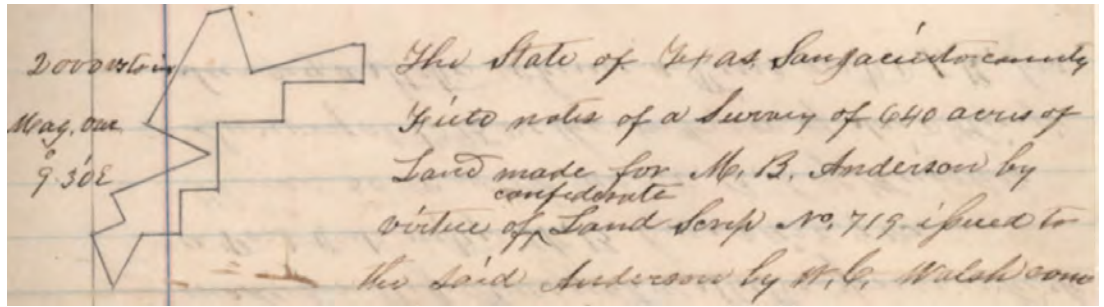 2000 vrs to in
Mag. var.
9°30'E
The State of Texas, Sanjacinto county
Field notes of a Survey of 640 acres of
Land made for M. B. Anderson by
confederate
virtue of ^ Land Scrip No. 719 issued to
the said Anderson by W. C. Walsh com